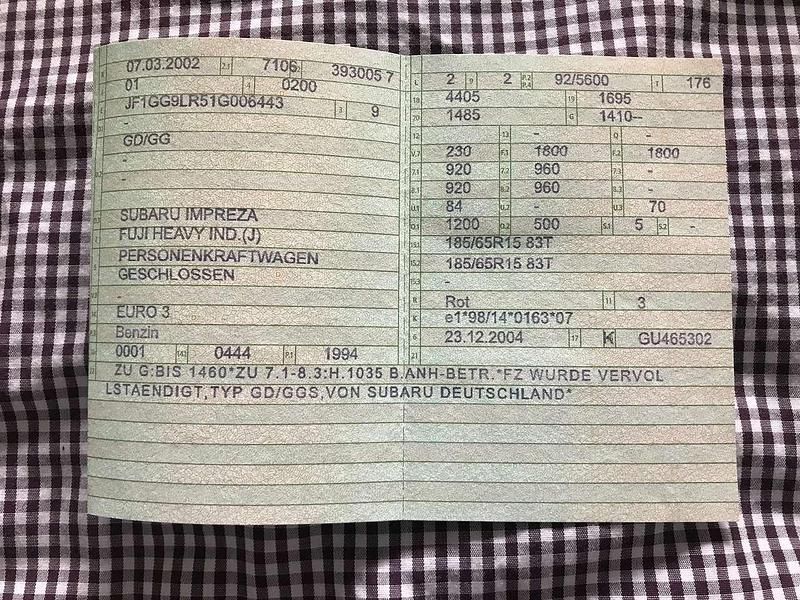 07.03.2002 7106 393005 7
01 0200
JF1GG9LR51G006443 9
-
GD/GG
-
-
SUBARU IMPREZA
FUJI HEAVY IND.(J)
PERSONENKRAFTWAGEN
GESCHLOSSEN
-
EURO 3
Benzin
0001 0444 1994
L 2 9 2 P.2 P.4 92/5600 T 176
18 4405 19 1695
20 1485 G 1410--
12 - 13 - Q -
V.7 230 F.1 1800 F.2 1800
7.1 920 7.2 960 7.3 -
8.1 920 8.2 960 8.3 -
U.1 84 U.2 - U.3 70
O.1 1200 O.2 500 S.1 5 S.2 -
15.1 185/65R15 83T
15.2 185/65R15 83T
15.3 -
R Rot 11 3
K e1*98/14*0163*07
6 23.12.2004 17 K GU465302
21
ZU G:BIS 1460*ZU 7.1-8.3:H.1035 B.ANH-BETR.*FZ WURDE VERVOL
LSTAENDIGT,TYP GD/GGS,VON SUBARU DEUTSCHLAND*